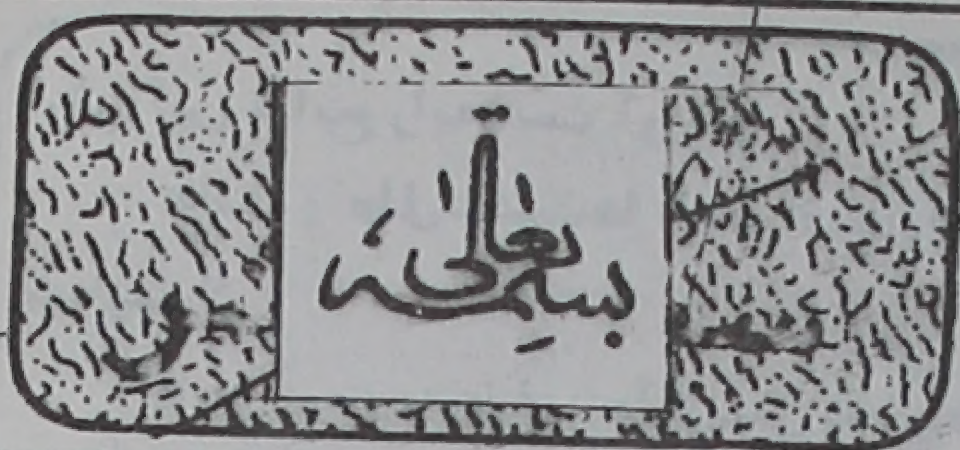 بِسْمِهٖ تَعَالٰی